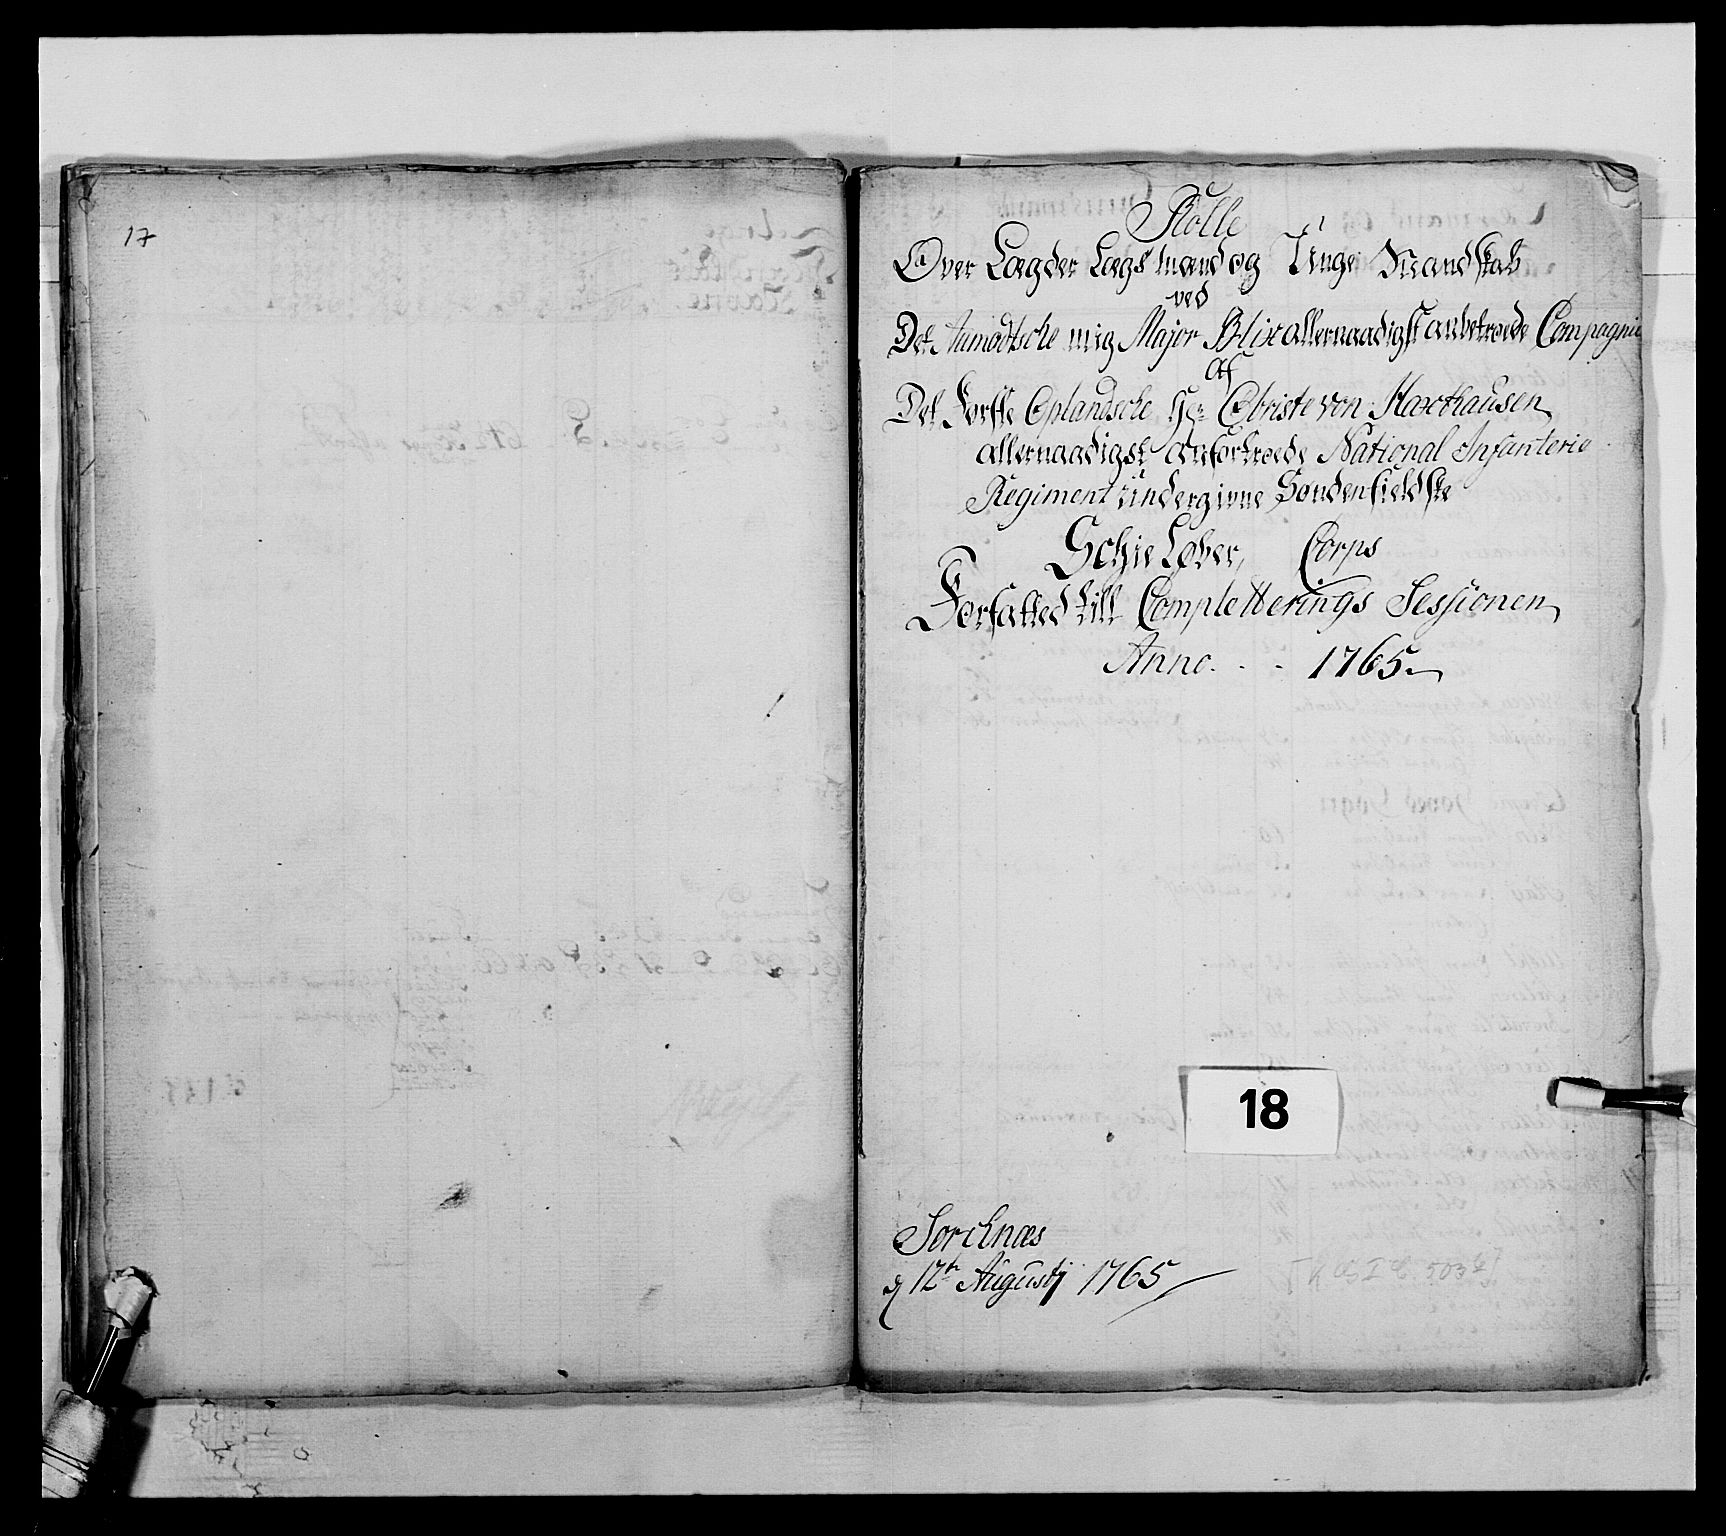 17
Rolle
Over Lægder Lægsmænd og Unge Mandskab
ved
Det Aamodtsche mig Major Blix allernaadigst anbetroede Compagnie
af
Det Første Oplandsche Hr Obriste von Haxthausen
allernaadigst anfortroede National Infanterie
Regiment undergivne Søndenfieldske
Schie Løber, Corps
Forfatted till Completterings Sessionen
Anno. - - 1765.
18
Sorchnæs
d 12te Augustj 1765